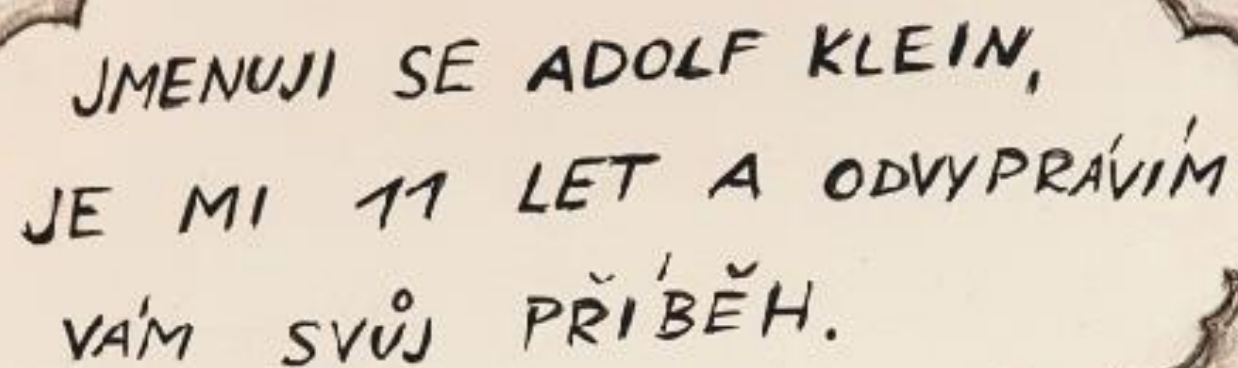 JMENUJI SE ADOLF KLEIN,
JE MI 11 LET A ODVYPRÁVÍM
VÁM SVŮJ PŘÍBĚH.